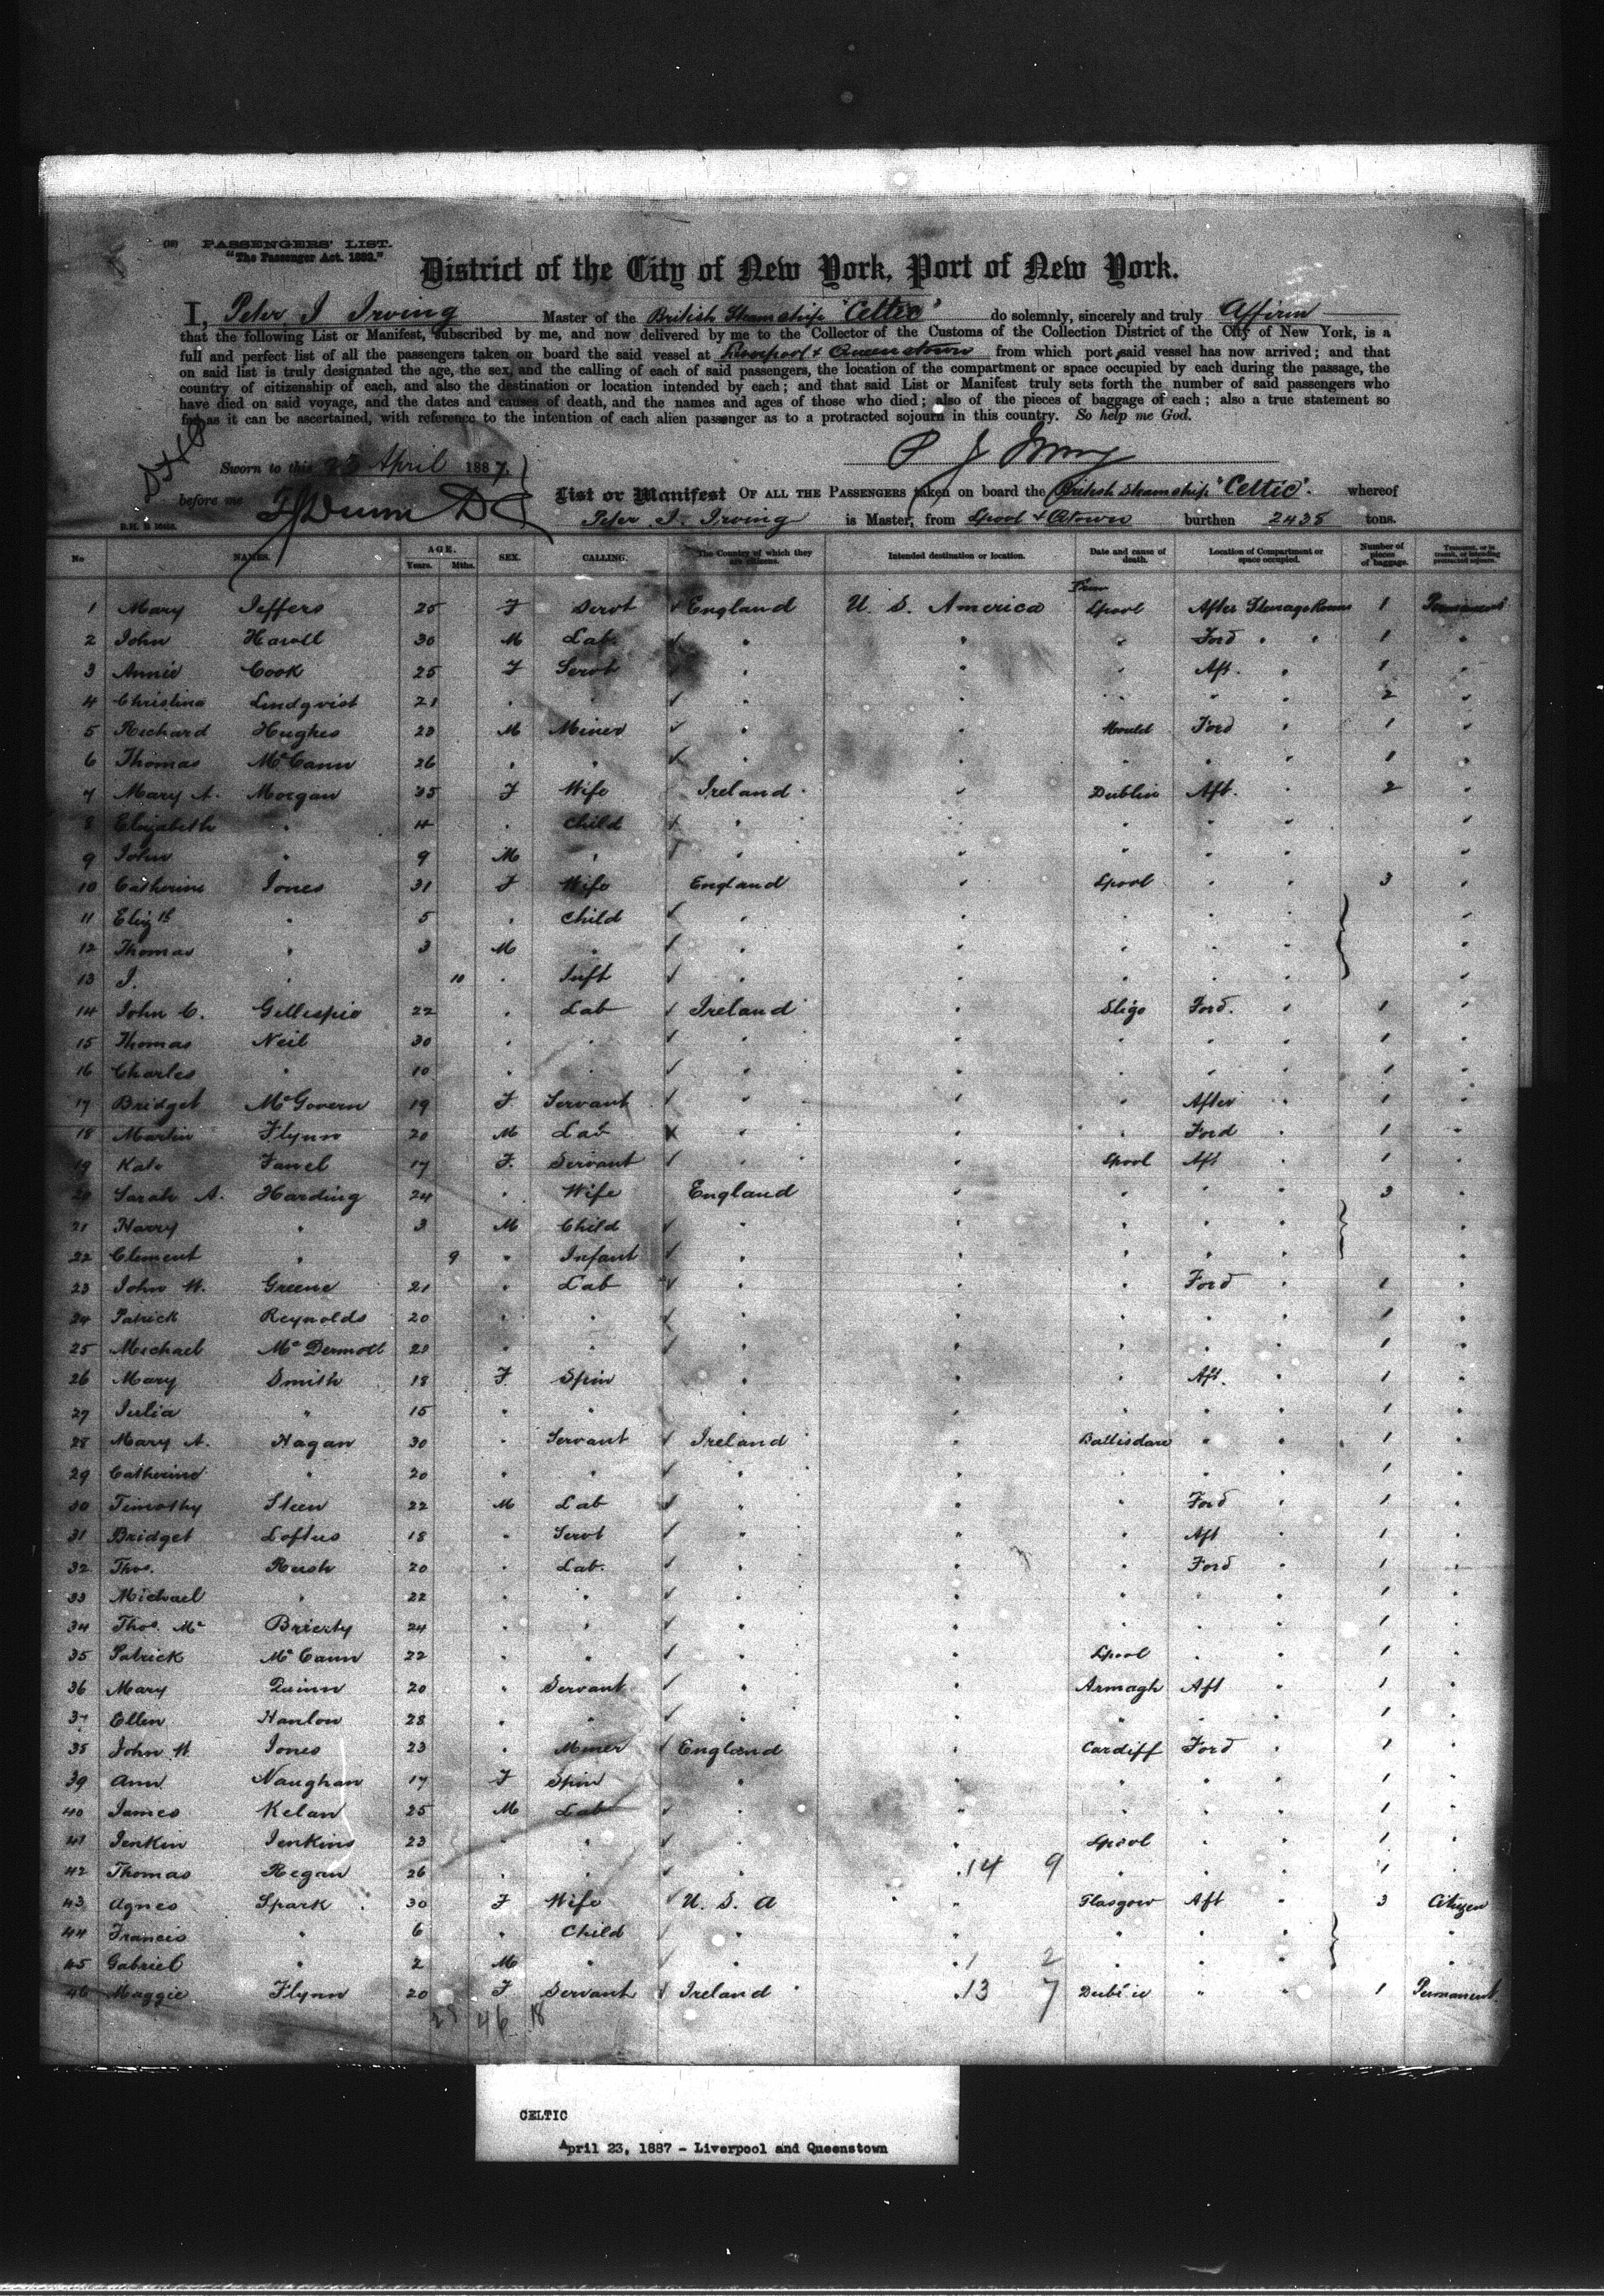 PASSENGERS' LIST.
"The Passenger Act. 1882."
District of the City of New York, Port of New York.
I, Peter J Irving Master of the British Steamship "Celtic" do solemnly, sincerely and truly Affirm
that the following List or Manifest, subscribed by me, and now delivered by me to the Collector of the Customs of the Collection District of the City of New York, is a
full and perfect list of all the passengers taken on board the said vessel at Liverpool & Queenstown from which port said vessel has now arrived; and that
on said list is truly designated the age, the sex, and the calling of each of said passengers, the location of the compartment or space occupied by each during the passage, the
country of citizenship of each, and also the destination or location intended by each; and that said List or Manifest truly sets forth the number of said passengers who
have died on said voyage, and the dates and causes of death, and the names and ages of those who died; also of the pieces of baggage of each; also a true statement so
far as it can be ascertained, with reference to the intention of each alien passenger as to a protracted sojourn in this country. So help me God.
P J Irving
Sworn to this 23 April 1887.
before me
List or Manifest OF ALL THE PASSENGERS taken on board the British Steamship "Celtic". whereof
Peter J. Irving is Master, from Lpool & Qtown burthen 2438 tons.
No NAMES. AGE. Years. Mths. SEX. CALLING. The Country of which they are citizens. Intended destination or location. Date and cause of death. Location of Compartment or space occupied. Number of pieces of baggage. Transient, or in transit, or intending protracted sojourn.
From
1 Mary Jeffers 25 F Servt England U. S. America Lpool After Steerage Rooms 1 Permanent
2 John Haroll 30 M Lab " " " Ford " " 1 "
3 Annie Cook 25 F Servt " " " Aft. " 1 "
4 Christina Lindqvist 21 " " " " " " " 2 "
5 Richard Hughes 23 M Miner " " Mould Ford " 1 "
6 Thomas McCann 26 " " " " " " " 1 "
7 Mary A. Morgan 35 F Wife Ireland " Dublin Aft. " 2 "
8 Elizabeth " 4 " Child " " " " " "
9 John " 9 M " " " " " " "
10 Catherine Jones 31 F Wife England " Lpool " " 3 "
11 Elizth " 5 " Child " " " " " "
12 Thomas " 3 M " " " " " " "
13 J. " 10 " Inft " " " " " "
14 John C. Gillespie 22 " Lab Ireland " Sligo Ford. " 1 "
15 Thomas Neil 30 " " " " " " " 1 "
16 Charles " 10 " " " " " " " 1 "
17 Bridget McGovern 19 F Servant " " " After " 1 "
18 Martin Flynn 20 M Lab " " " Ford " 1 "
19 Kate Fanel 17 F. Servant " " Lpool Aft " 1 "
20 Sarah A. Harding 24 " Wife England " " " " 3 "
21 Harry " 3 M Child " " " " " "
22 Clement " 9 " Infant " " " " " "
23 John W. Greene 21 " Lab " " " Ford " 1 "
24 Patrick Reynolds 20 " " " " " " " 1 "
25 Michael McDermott 21 " " " " " " " 1 "
26 Mary Smith 18 F Spin " " " Aft. " 1 "
27 Julia " 15 " " " " " " " 1 "
28 Mary A. Hagan 30 " Servant Ireland " Ballisdare " " 1 "
29 Catherine " 20 " " " " " " " 1 "
30 Timothy Steen 22 M Lab " " " Ford " 1 "
31 Bridget Loftus 18 " Servt " " " Aft " 1 "
32 Thos. Rush 20 " Lab. " " " Ford " 1 "
33 Michael " 22 " " " " " " " 1 "
34 Thos. Mc Brierty 24 " " " " " " " 1 "
35 Patrick McCann 22 " " " " Lpool " " 1 "
36 Mary Quinn 20 " Servant " " Armagh Aft " 1 "
37 Ellen Hanlon 28 " " " " " " " 1 "
38 John W Jones 23 " Miner England " Cardiff Ford " 1 "
39 Ann Naughan 17 F Spin " " " " " 1 "
40 James Kelan 25 M Lab " " " " " 1 "
41 Jenkin Jenkins 23 " " " " Lpool " " 1 "
42 Thomas Regan 26 " " " " 14 9 " " " 1 "
43 Agnes Spark 30 F Wife U. S. A " Glasgow Aft " 3 Citizen
44 Francis " 6 " Child " " " " " "
45 Gabriel " 2 M " " " 1 2 " " " "
46 Maggie Flynn 20 F Servant Ireland " 13 7 Dublin " " 1 Permanent.
28 46 18
CELTIC
April 23, 1887 - Liverpool and Queenstown